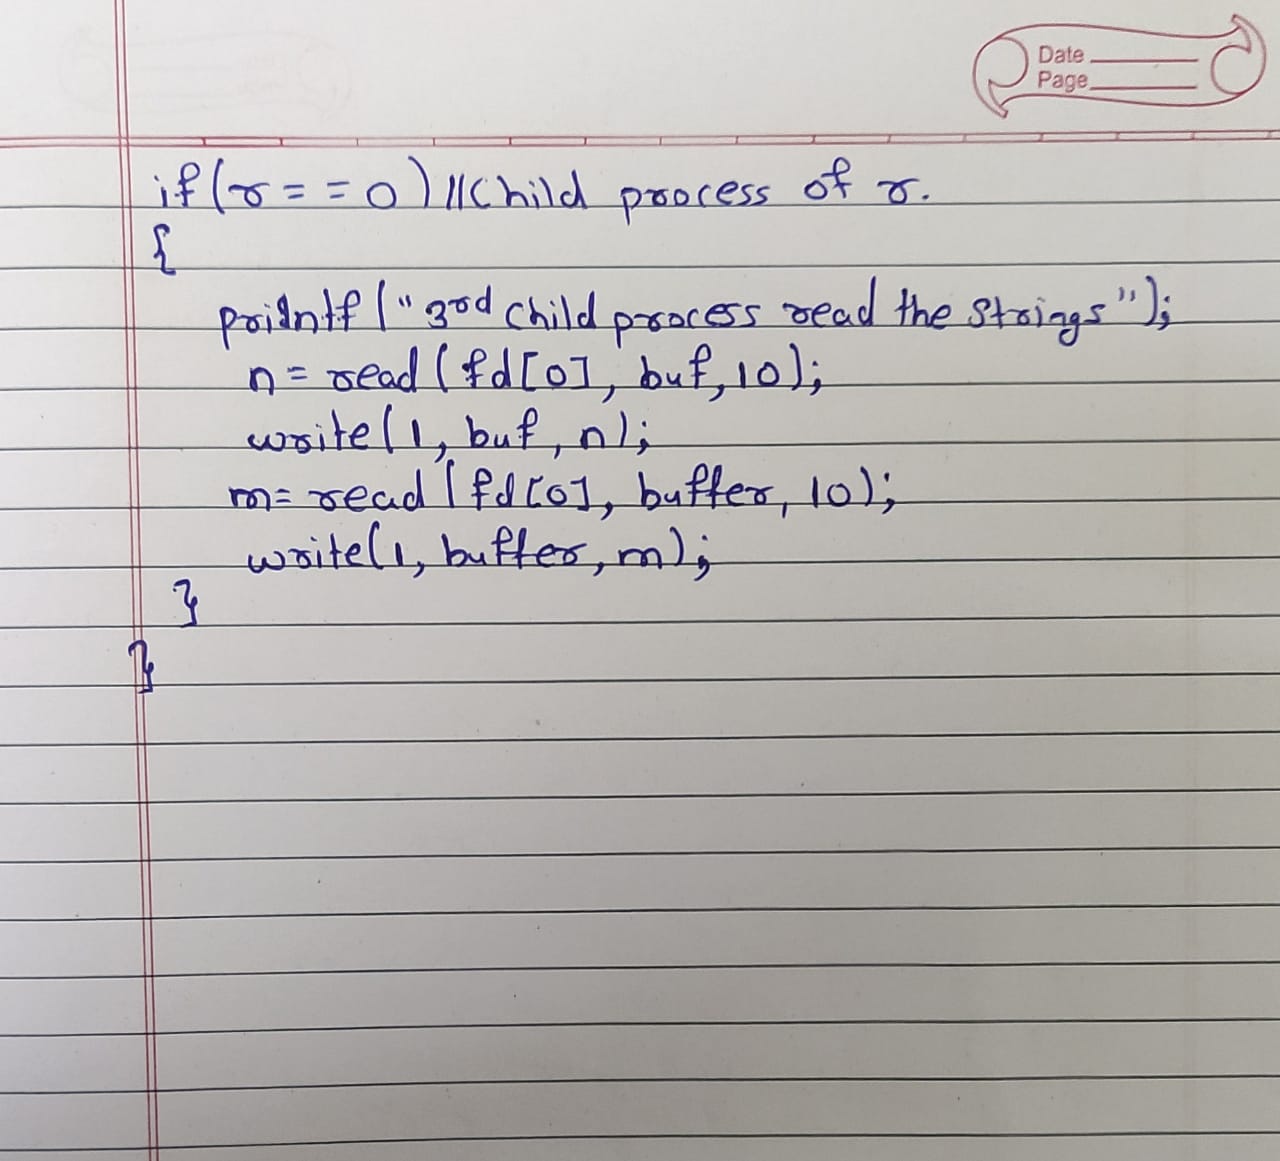 Date
Page
if(r==0)//Child process of r.
{
printf("3rd child process read the strings");
n=read(fd[0], buf,10);
write(1, buf, n);
m=read(fd[0], buffer, 10);
write(1, buffer, m);
}
}